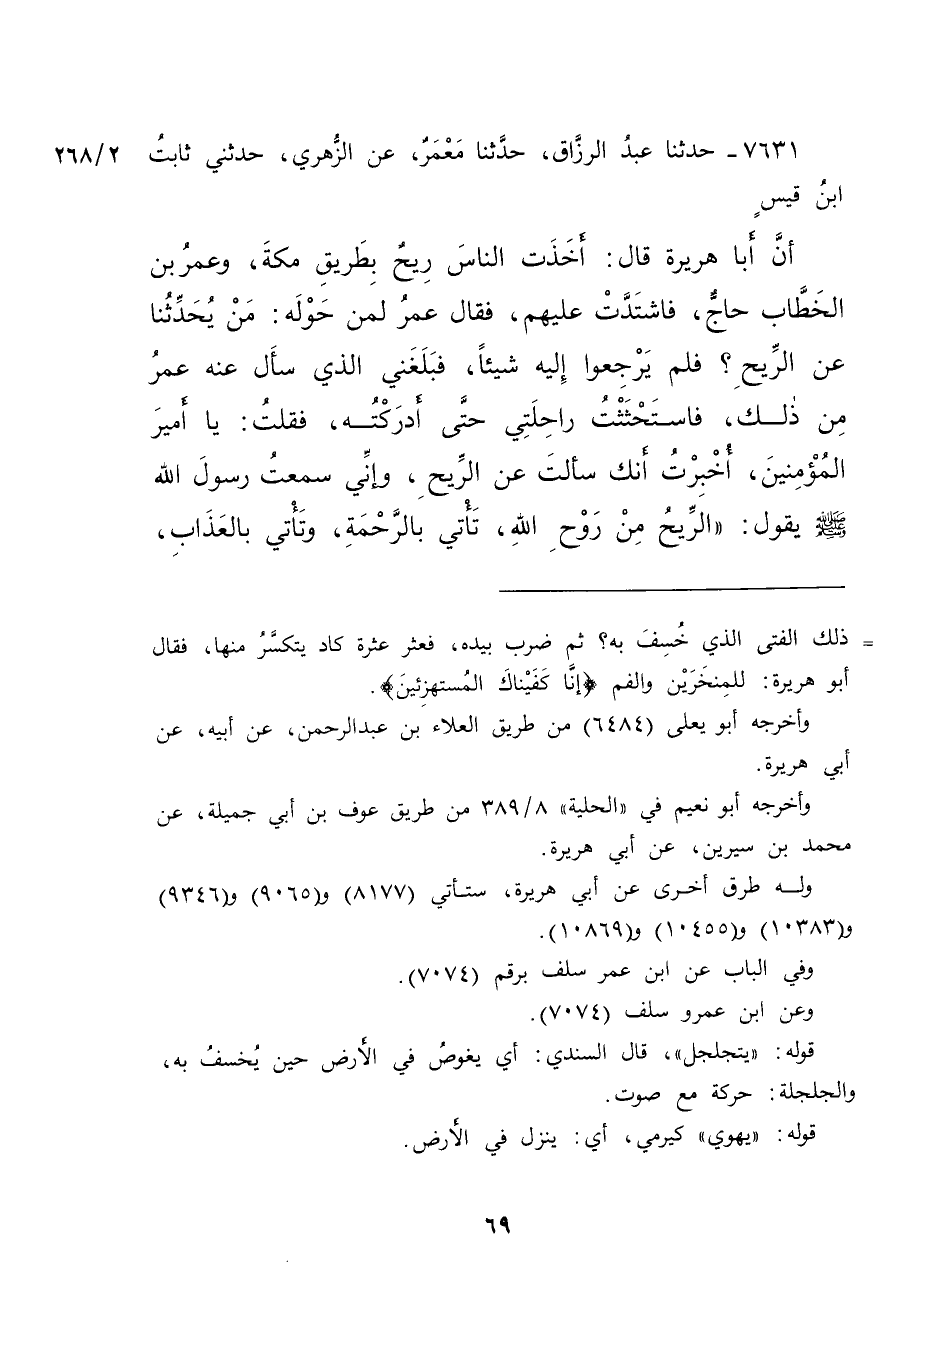 ٧٦٣١ - حدثنا عبدُ الرزَّاق، حدَّثنا مَعْمَرٌ، عن الزُّهري، حدثني ثابتُ ٢٦٨/٢
ابنُ قيسٍ
أنَّ أَبا هريرة قال: أَخَذَت الناسَ رِيحٌ بِطَريقِ مكةَ، وعمرُ بن
الخَطَّاب حاجٌّ، فاشتَدَّتْ عليهم، فقال عمرُ لمن حَوْلَه: مَنْ يُحَدِّثُنا
عن الرِّيحِ؟ فلم يَرْجِعوا إِليه شيئاً، فبَلَغَني الذي سأَل عنه عمرُ
مِن ذٰلك، فاستَحْثَثْتُ راحِلَتِي حتَّى أَدرَكْتُه، فقلتُ: يا أَميرَ
المُؤْمِنينَ، أُخْبِرْتُ أَنك سألتَ عن الرِّيحِ، وإنِّي سمعتُ رسولَ الله
ﷺ يقول: «الرِّيحُ مِنْ رَوْحِ اللهِ، تَأْتي بالرَّحْمَةِ، وتَأْتي بالعَذَابِ،
= ذلك الفتى الذي خُسِفَ به؟ ثم ضرب بيده، فعثر عثرة كاد يتكسَّرُ منها، فقال
أبو هريرة: للمِنخَرَيْن والفم ﴿إنَّا كَفَيْناكَ المُستهزِئينَ﴾.
وأخرجه أبو يعلى (٦٤٨٤) من طريق العلاء بن عبدالرحمن، عن أبيه، عن
أبي هريرة.
وأخرجه أبو نعيم في «الحلية» ٣٨٩/٨ من طريق عوف بن أبي جميلة، عن
محمد بن سيرين، عن أبي هريرة.
وله طرق أخرى عن أبي هريرة، ستأتي (٨١٧٧) و(٩٠٦٥) و(٩٣٤٦)
و(١٠٣٨٣) و(١٠٤٥٥) و(١٠٨٦٩).
وفي الباب عن ابن عمر سلف برقم (٧٠٧٤).
وعن ابن عمرو سلف (٧٠٧٤).
قوله: «يتجلجل»، قال السندي: أي يغوصُ في الأَرض حين يُخسفُ به،
والجلجلة: حركة مع صوت.
قوله: «يهوي» كيرمي، أي: ينزل في الأَرض.
٦٩